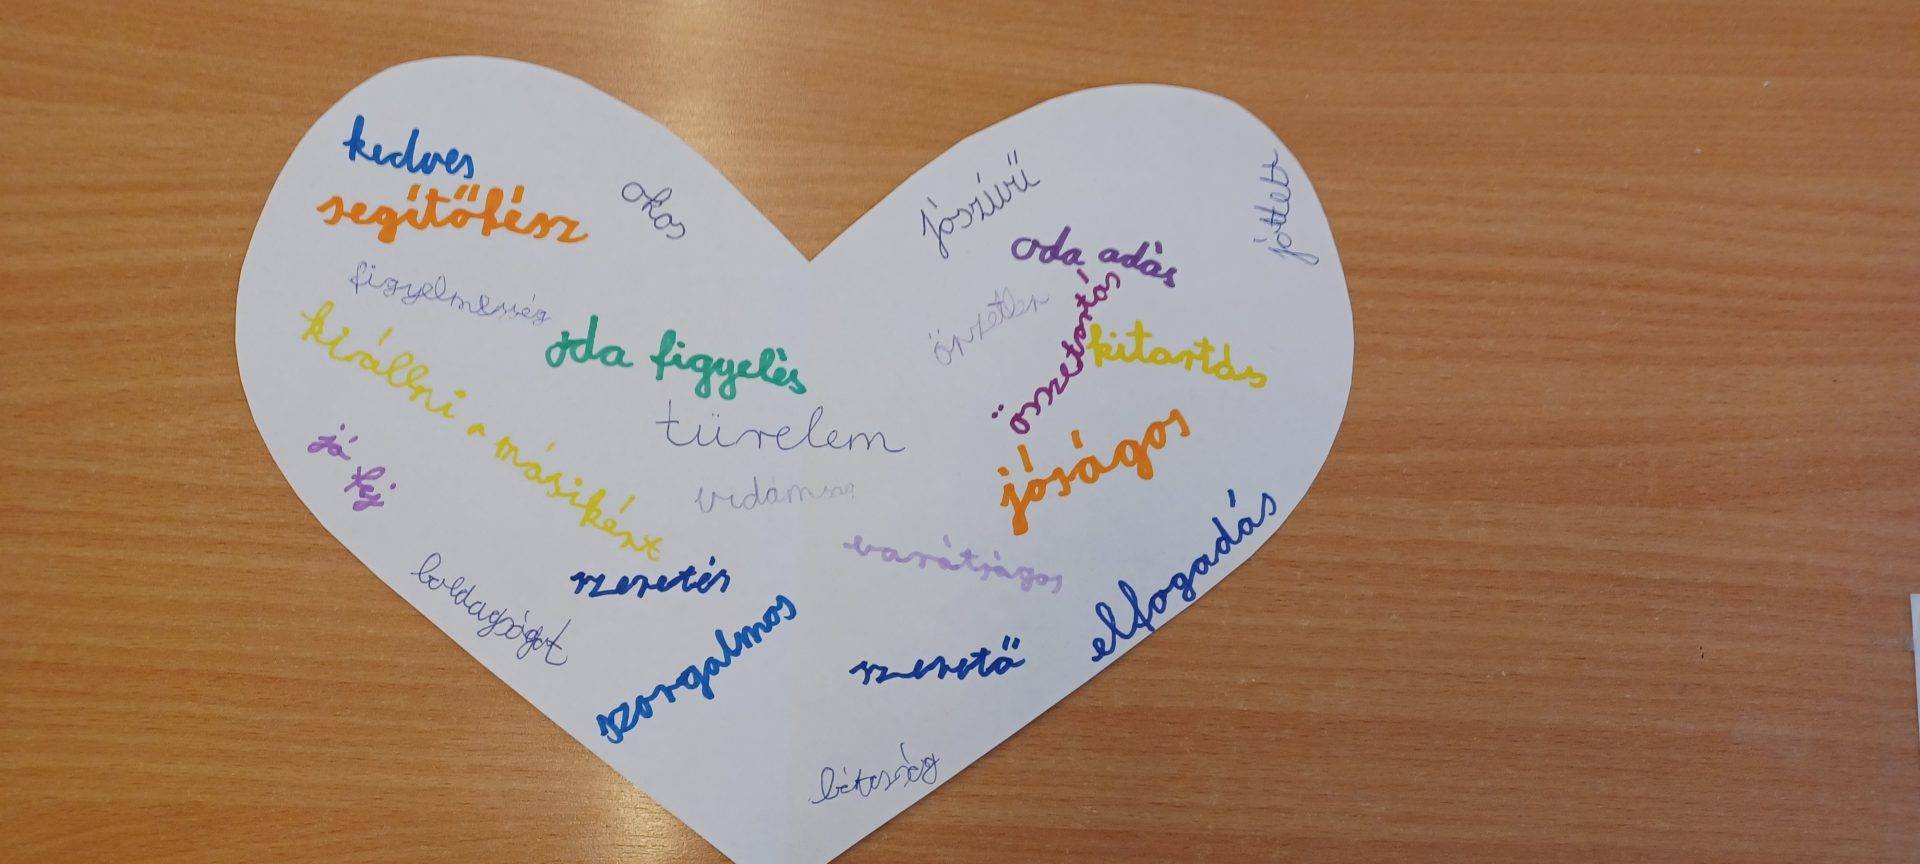 kedves
segítőkész
okos
figyelmesség
oda figyelés
kiállni a másikért
jó
fej
türelem
vidámság
szeretés
boldogságot
szorgalmos
jószívű
jóttett
oda adás
önzetlen
összetartás
kitartás
jóságos
barátságos
elfogadás
szerető
bátorság